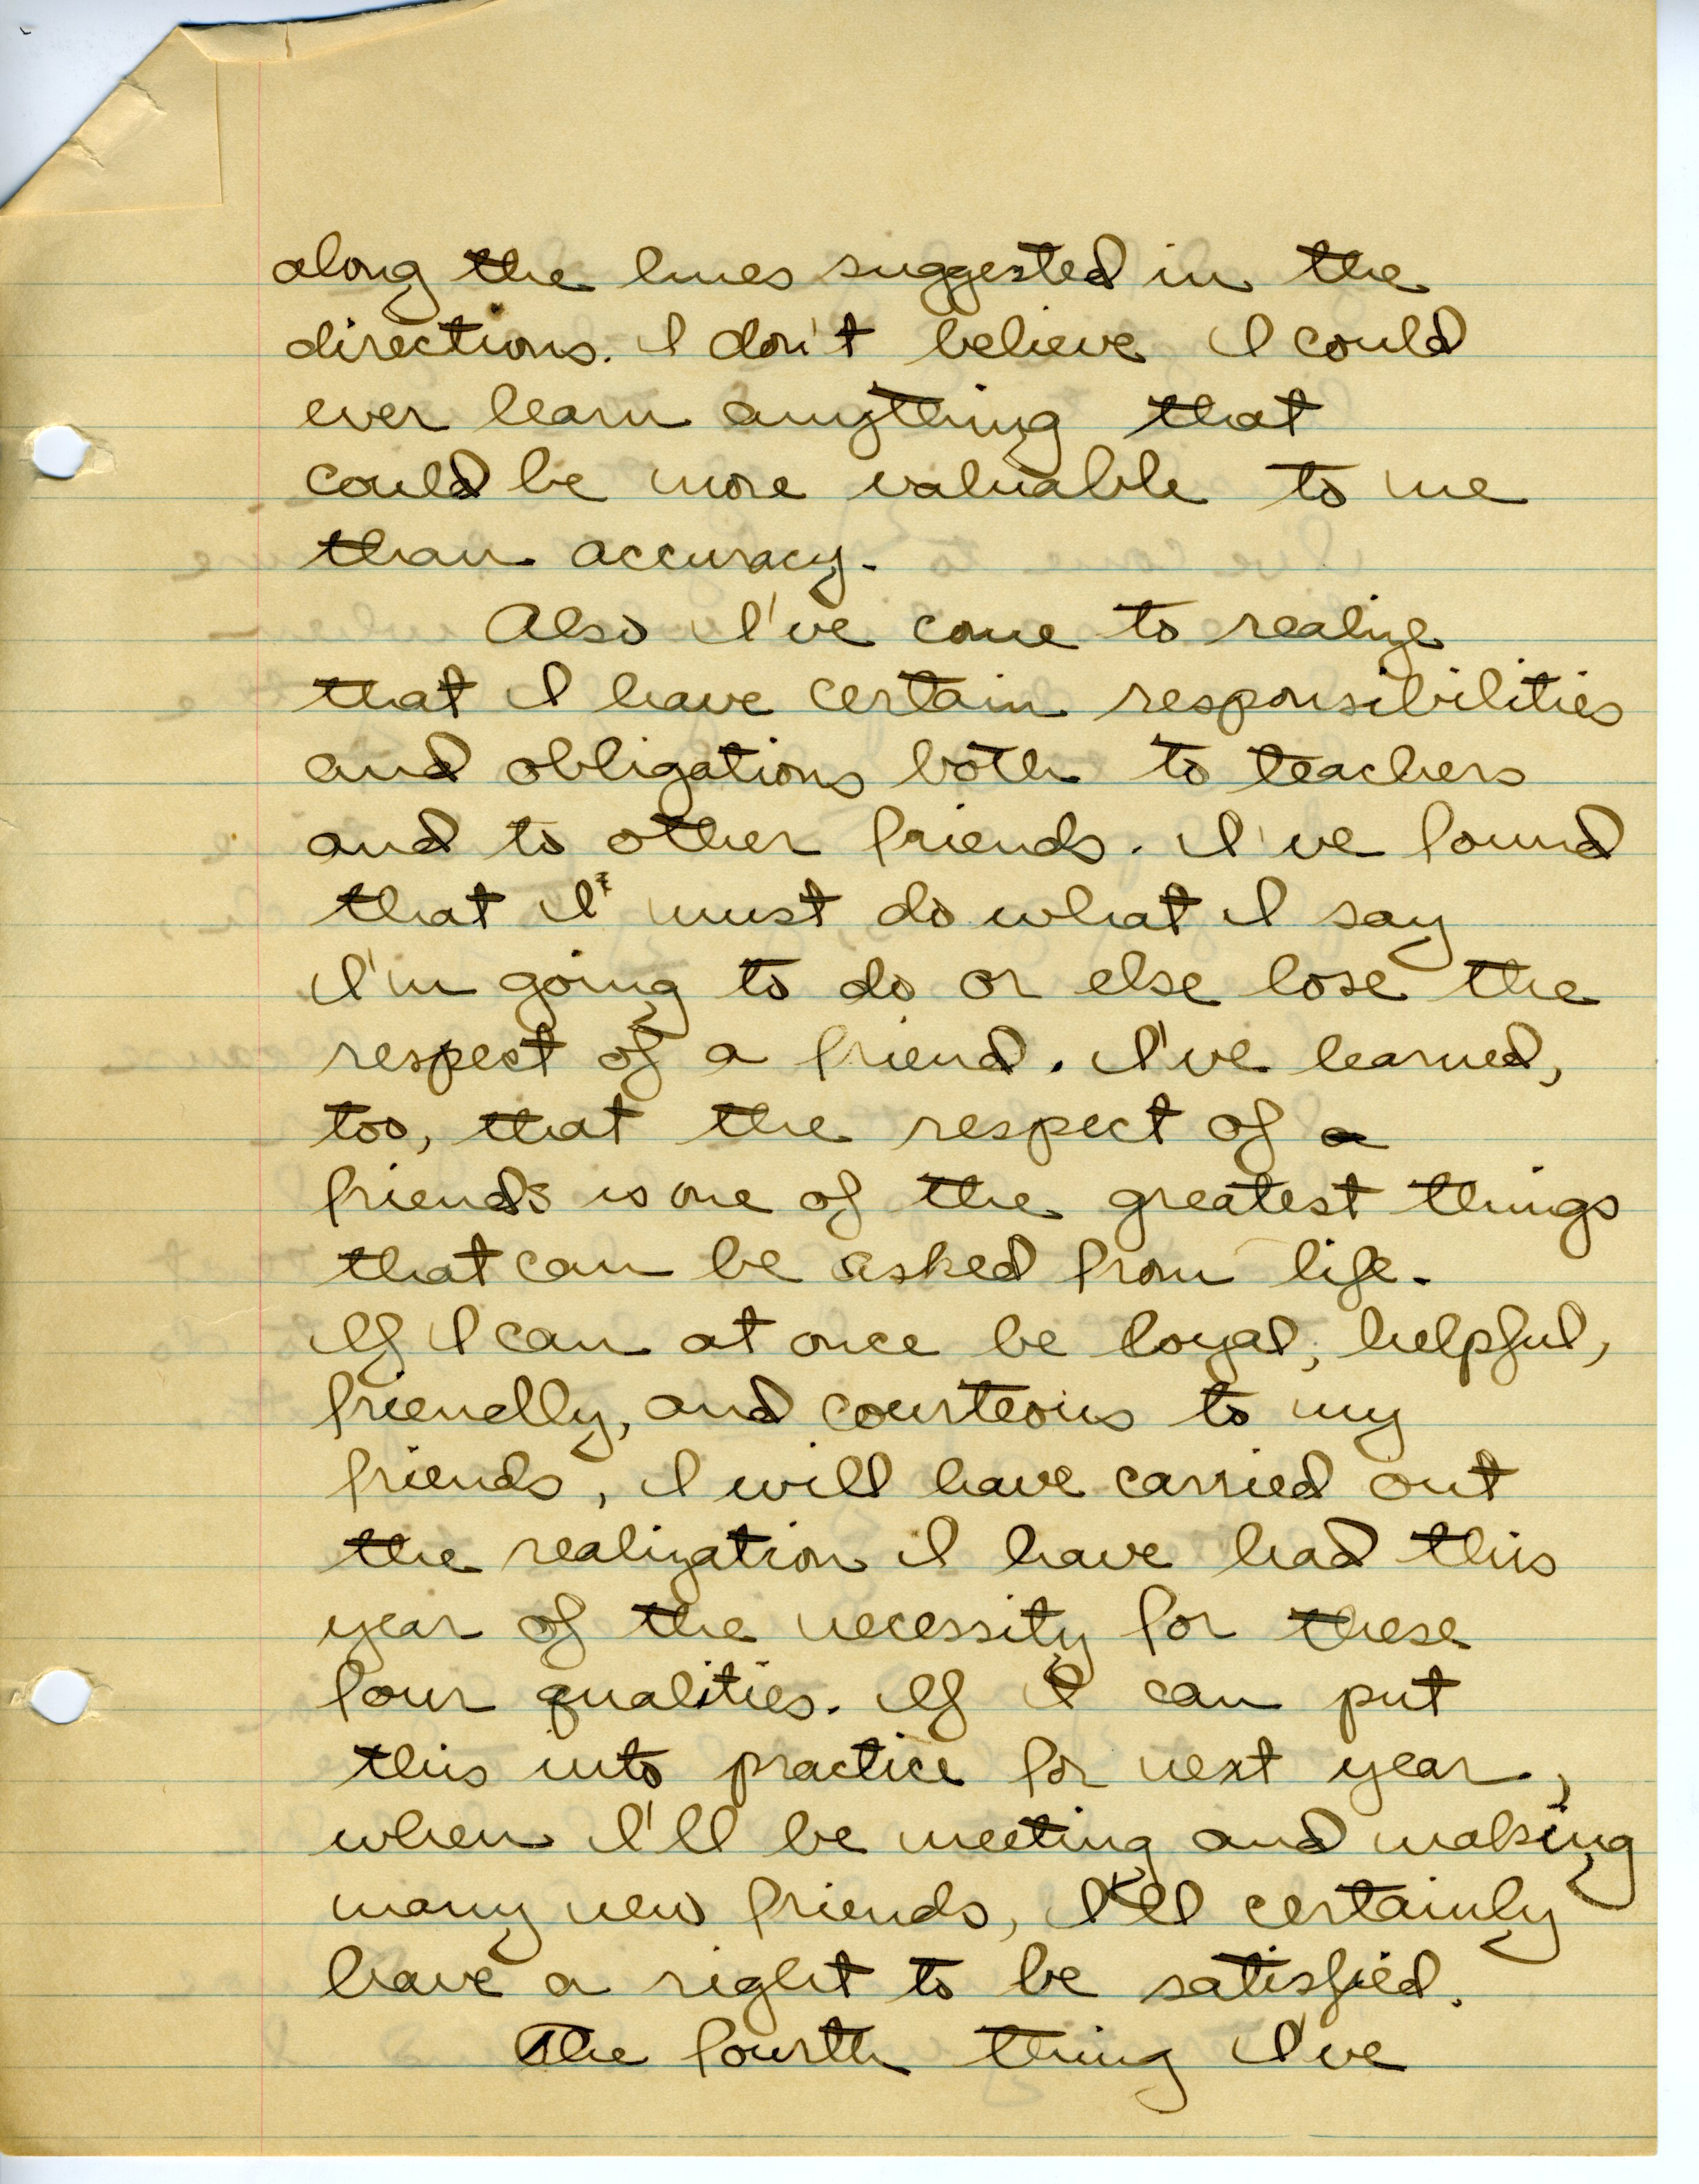 along the lines suggested in the
directions. I don't believe I could
ever learn anything that
could be more valuable to me
than accuracy.
Also I've come to realize
that I have certain responsibilities
and obligations both to teachers
and to other friends. I've found
that I must do what I say
I'm going to do or else lose the
respect of a friend. I've learned,
too, that the respect of a
friends is one of the greatest things
that can be asked from life.
If I can at once be loyal, helpful,
friendly, and courteous to my
friends, I will have carried out
the realization I have had this
year of the necessity for these
four qualities. If I can put
this into practice for next year,
when I'll be meeting and making
many new friends, I'll certainly
have a right to be satisfied.
The fourth thing I've